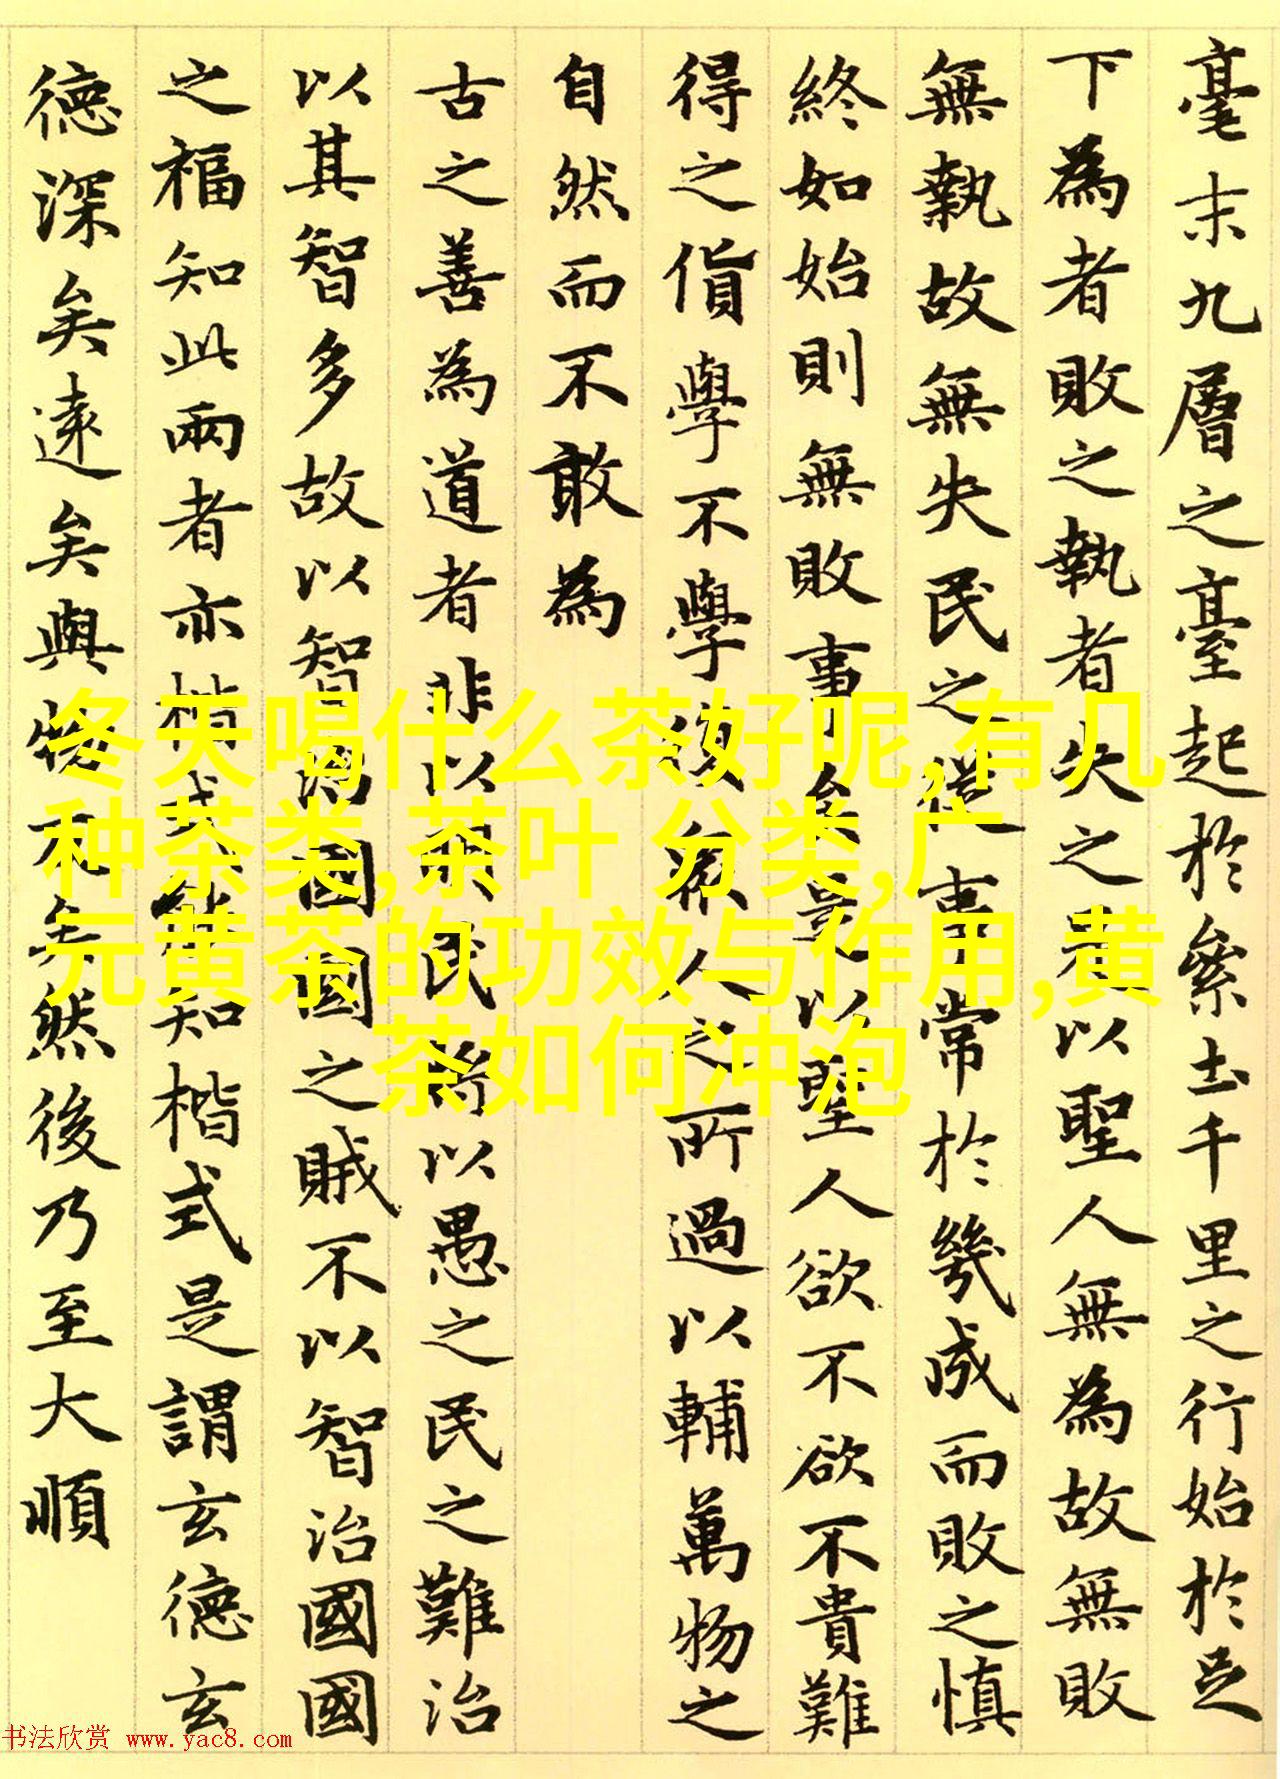 毫末九層之臺起於絫土千里之行始於足
下為者敗之執者失之是以聖人無為故無敗
無執故無失民之從事常於幾成而敗之慎
終如始則無敗事矣是以聖人欲不欲不貴難
得之貨學不學復眾人之所過以輔萬物之
自然而不敢為
古之善為道者非以明民將以愚之民之難治
以其智多故以智治國國之賊不以智治國國
之福知此兩者亦楷式能知楷式是謂玄德玄
德深矣遠矣與物反矣然後乃至大順
冬天喝什么茶好呢,有几
种茶类,茶叶 分类,广
元黄茶的功效与作用,黄
茶如何冲泡
书法欣赏 www.yac8.com